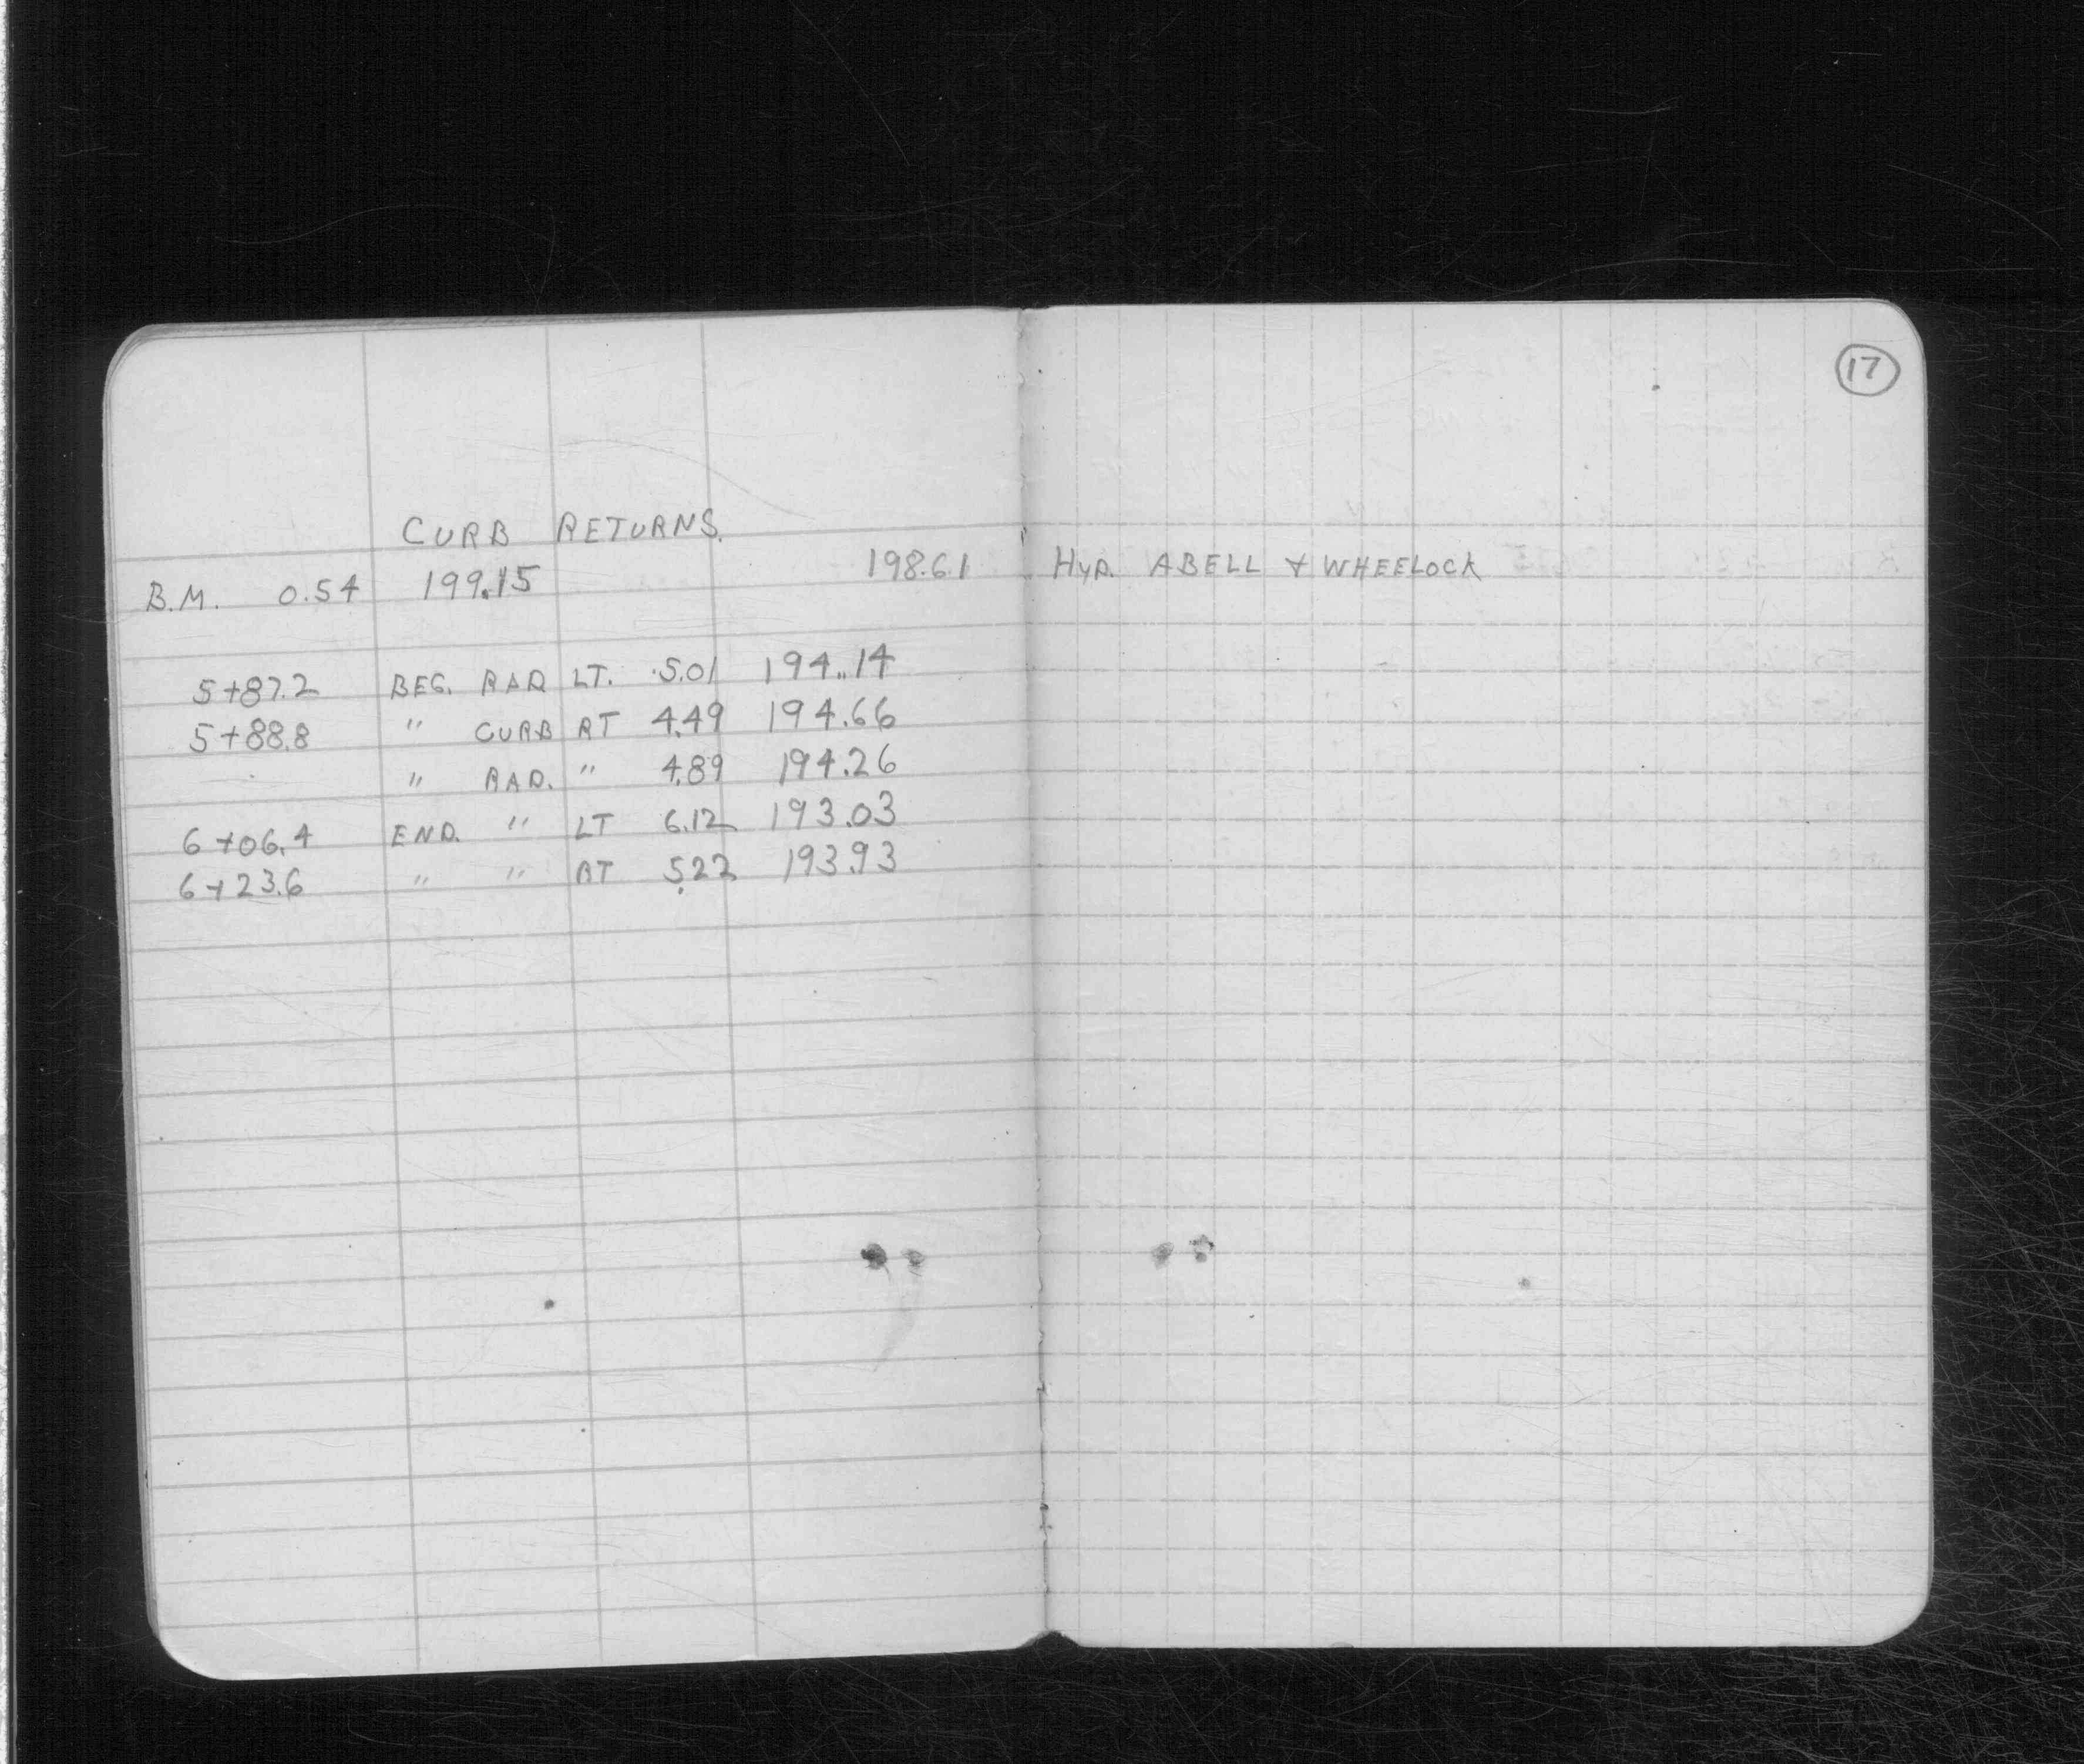 17
CURB RETURNS.
B.M. 0.54 199.15 198.61 Hyd. ABELL & WHEELOCK
5+87.2 BEG. RAD LT. 5.01 194.14
5+88.8 " CURB RT 4.49 194.66
" RAD. " 4.89 194.26
6+06.4 END. " LT 6.12 193.03
6+23.6 " " RT 5.22 193.93